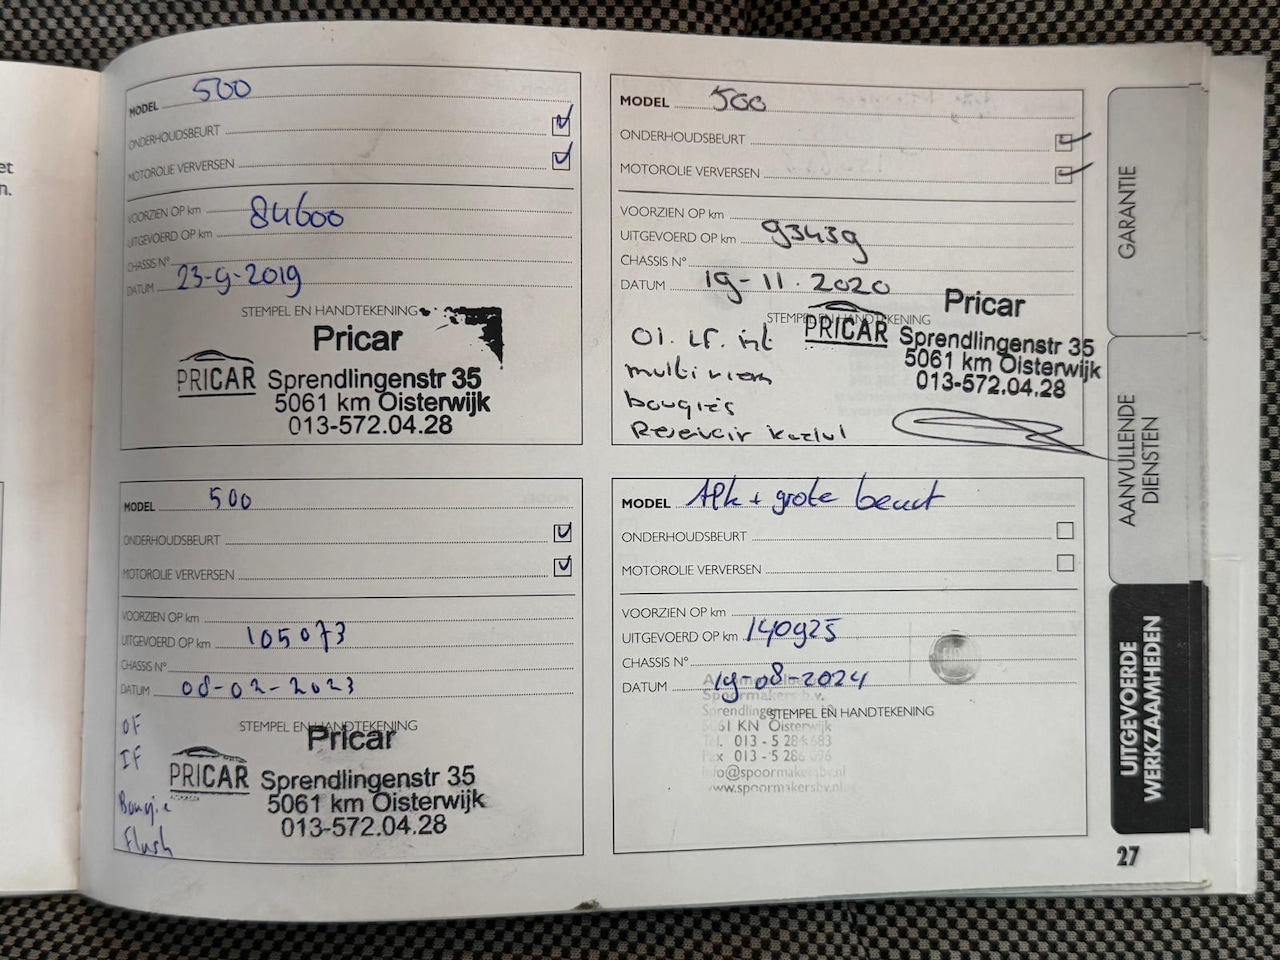 et
n.
MODEL 500
ONDERHOUDSBEURT
MOTOROLIE VERVERSEN
VOORZIEN OP km
84600
UITGEVOERD OP km
CHASSIS N°
DATUM 23-9-2019
STEMPEL EN HANDTEKENING
Pricar
PRICAR Sprendlingenstr 35
5061 km Oisterwijk
013-572.04.28
MODEL 500
ONDERHOUDSBEURT
MOTOROLIE VERVERSEN
VOORZIEN OP km
UITGEVOERD OP km 93439
CHASSIS N°
DATUM 19-11.2020
STEMPEL EN HANDTEKENING
Pricar
PRICAR Sprendlingenstr 35
5061 km Oisterwijk
013-572.04.28
multiriem
bougies
Reservoir
MODEL 500
ONDERHOUDSBEURT
MOTOROLIE VERVERSEN
VOORZIEN OP km
UITGEVOERD OP km 105073
CHASSIS N°
DATUM 08-02-2023
STEMPEL EN HANDTEKENING
Pricar
PRICAR Sprendlingenstr 35
5061 km Oisterwijk
013-572.04.28
OF
IF
Bougie
Flush
MODEL APK + grote beurt
ONDERHOUDSBEURT
MOTOROLIE VERVERSEN
VOORZIEN OP km
UITGEVOERD OP km 140925
CHASSIS N°
DATUM 19-08-2024
STEMPEL EN HANDTEKENING
Spoormakers b.v.
5061 KN Oisterwijk
Tel. 013 - 5
Fax 013 - 5
info@spoormakersbv.nl
www.spoormakersbv.nl
GARANTIE
AANVULLENDE
DIENSTEN
UITGEVOERDE
WERKZAAMHEDEN
27